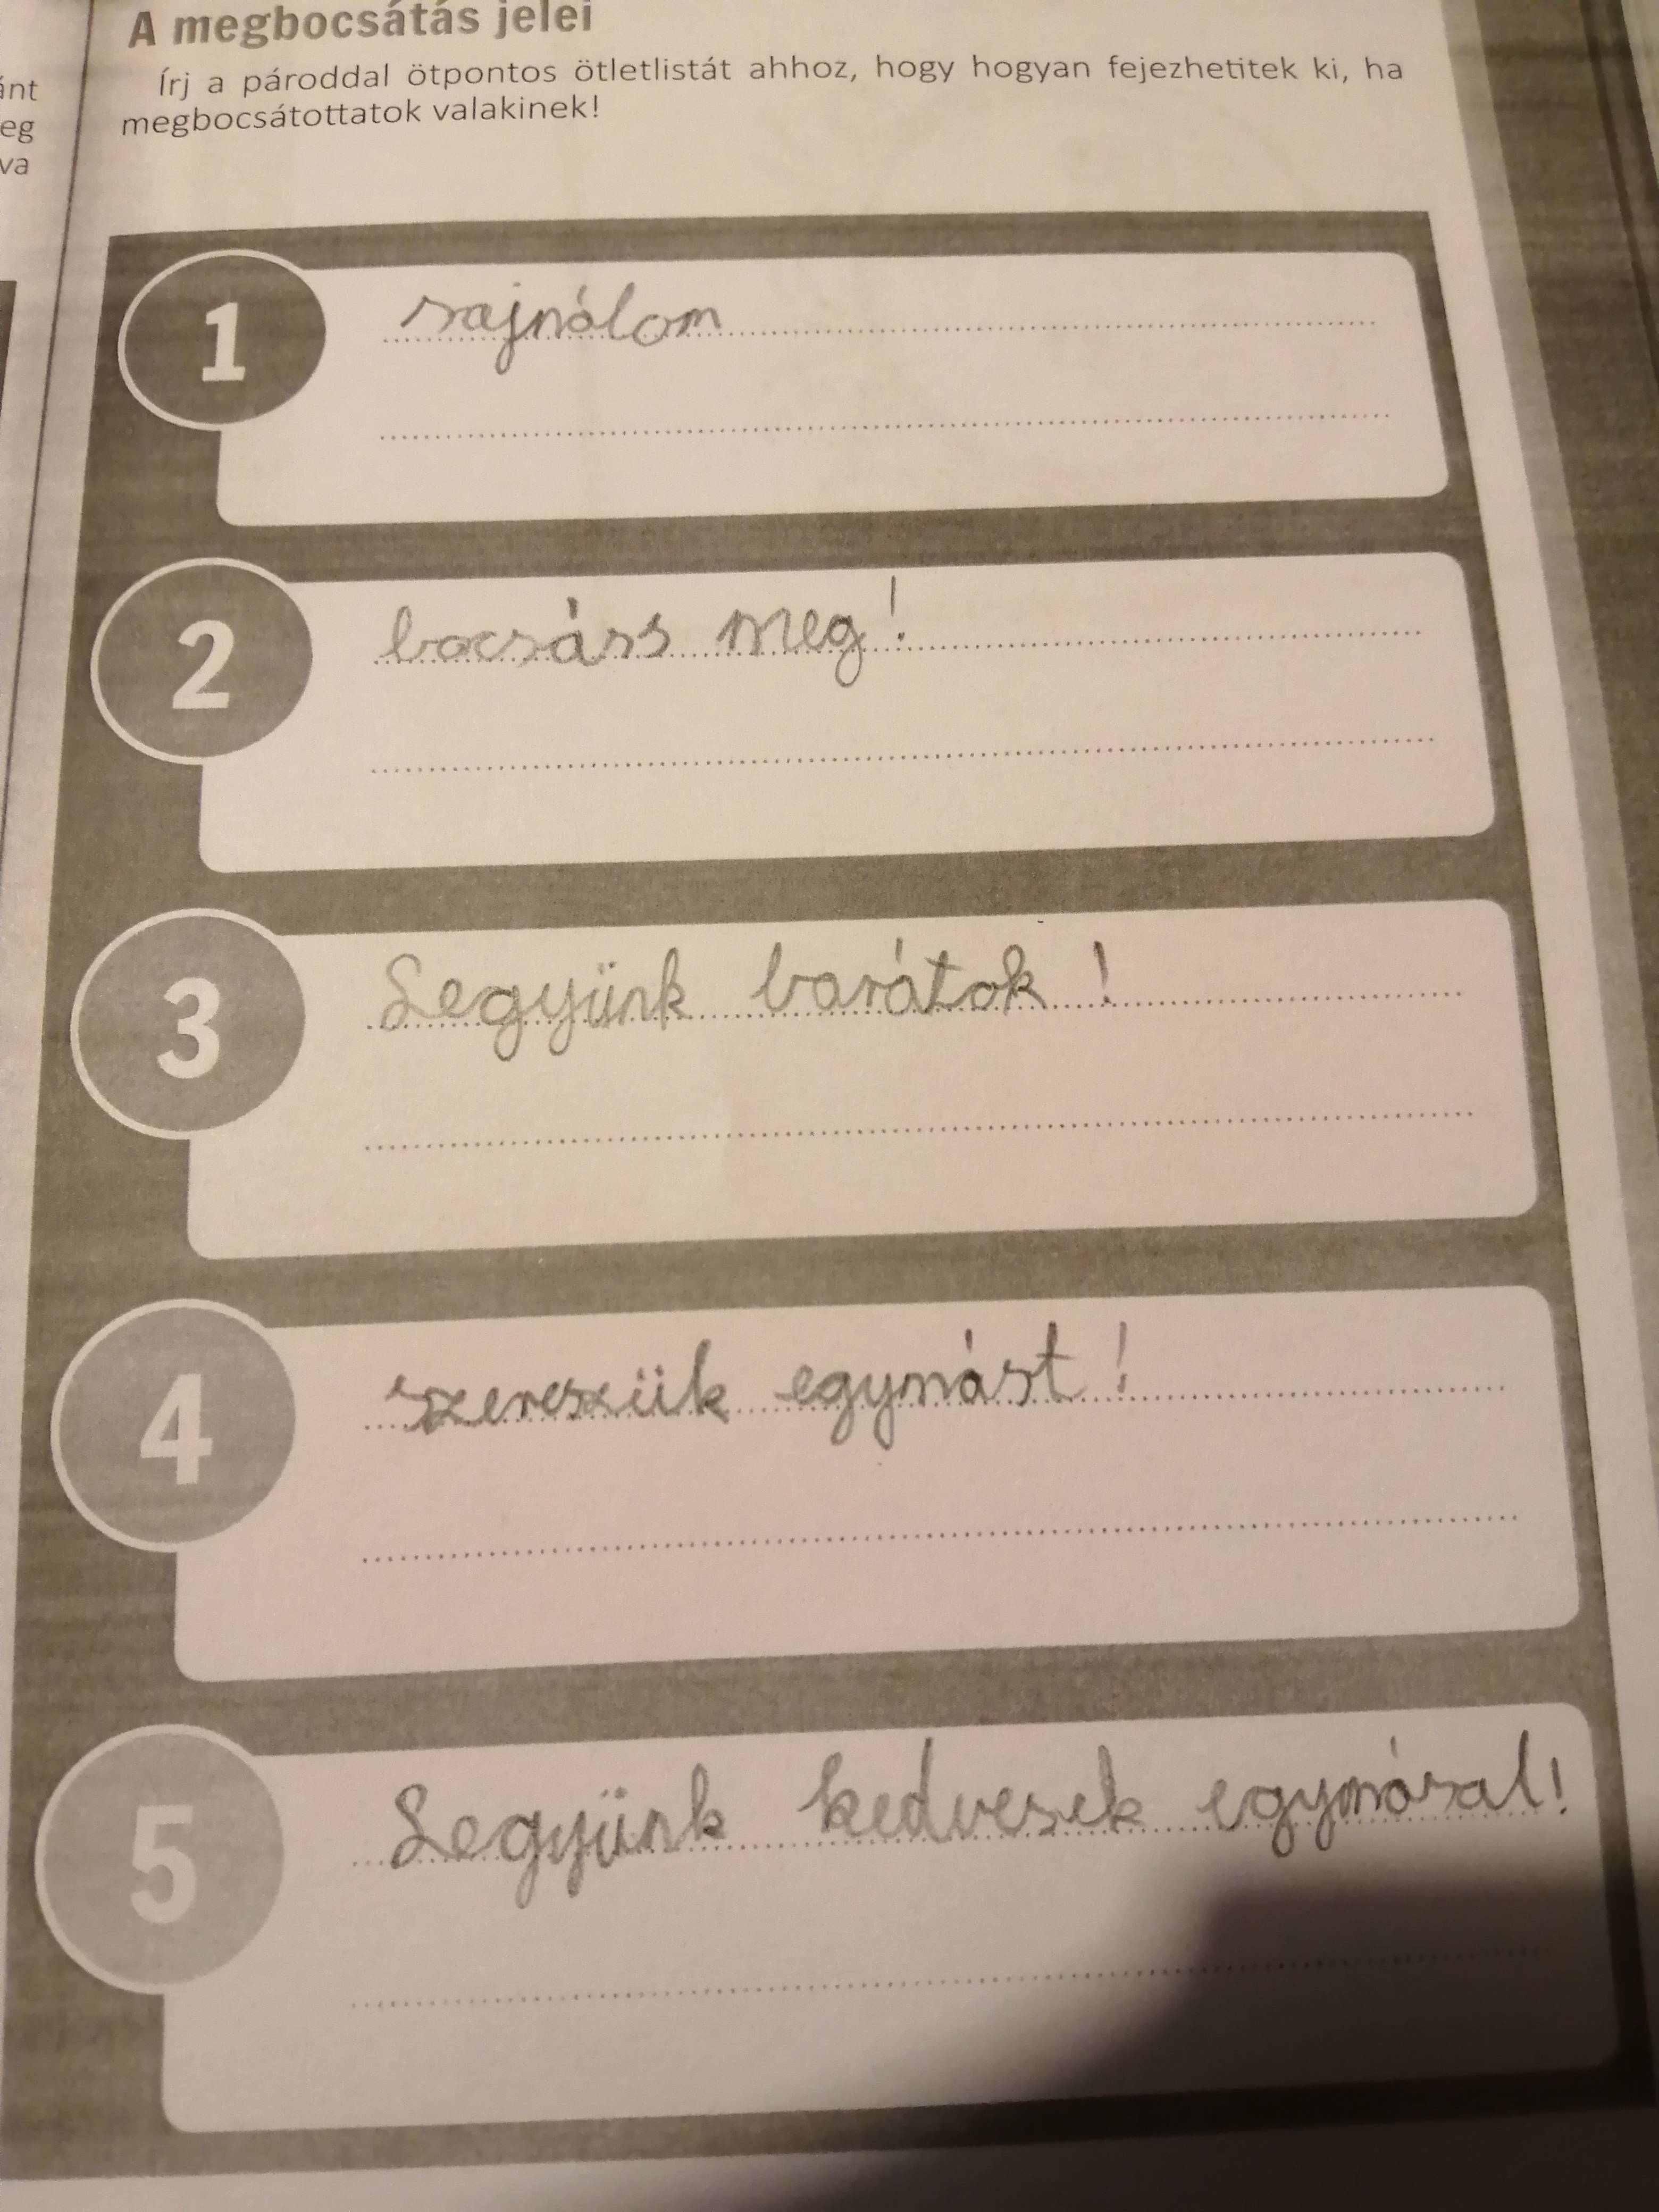 A megbocsátás jelei
Írj a pároddal ötpontos ötletlistát ahhoz, hogy hogyan fejezhetitek ki, ha
megbocsátottatok valakinek!
ánt
eg
va
1
sajnálom
2
bocsáss meg!
3
Legyünk barátok!
4
szereszük egymást!
5
Legyünk kedvesek egymásal!